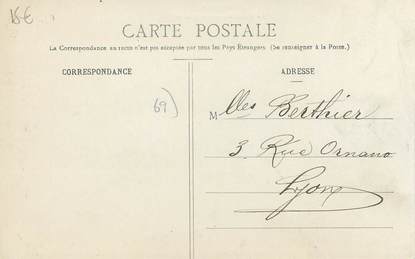 15€
CARTE POSTALE
La Correspondance au recto n'est pas acceptée par tous les Pays Étrangers. (Se renseigner à la Poste.)
CORRESPONDANCE
ADRESSE
69)
Mlles Berthier
3 Rue Ornano
Lyon